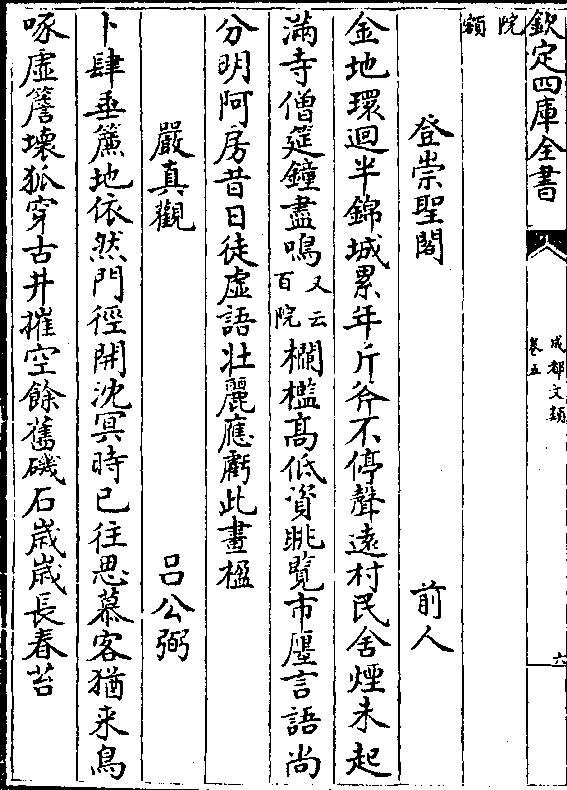 欽定四庫全書
成都文類
卷五
六
院
額
登崇聖閣 前人
金地環迴半錦城累年斤斧不停聲遠村民舍煙未起
滿寺僧筵鐘盡鳴又云百院欄檻高低資眺覽市廛言語尚
分明阿房昔日徒虛語壯麗應虧此畫楹
嚴真觀 呂公弼
卜肆垂簾地依然門徑開沈冥時已往思慕客猶来鳥
啄虛簷壞狐穿古井摧空餘舊磯石歲歲長春苔